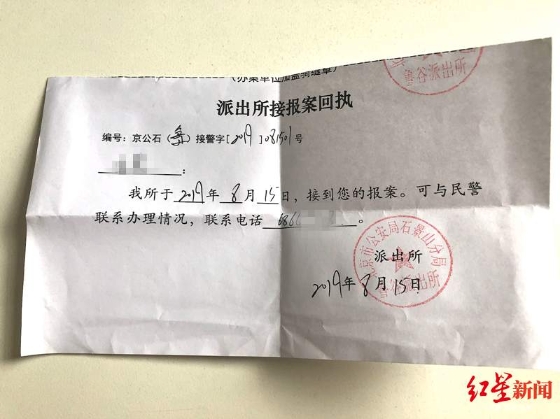 （办案单位加盖骑缝章）
派出所接报案回执
编号：京公石（鲁）接警字[2019]081501号
：
我所于2019年8月15日，接到您的报案。可与民警
联系办理情况，联系电话6866。
派出所
2019年8月15日
北京市公安局石景山分局
鲁谷派出所
鲁谷派出所
红星新闻